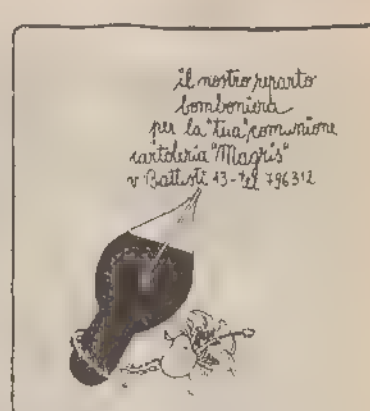 il nostro reparto
bomboniera
per la "tua" comunione
cartoleria "Magris"
v. Battisti 13 - tel 796312